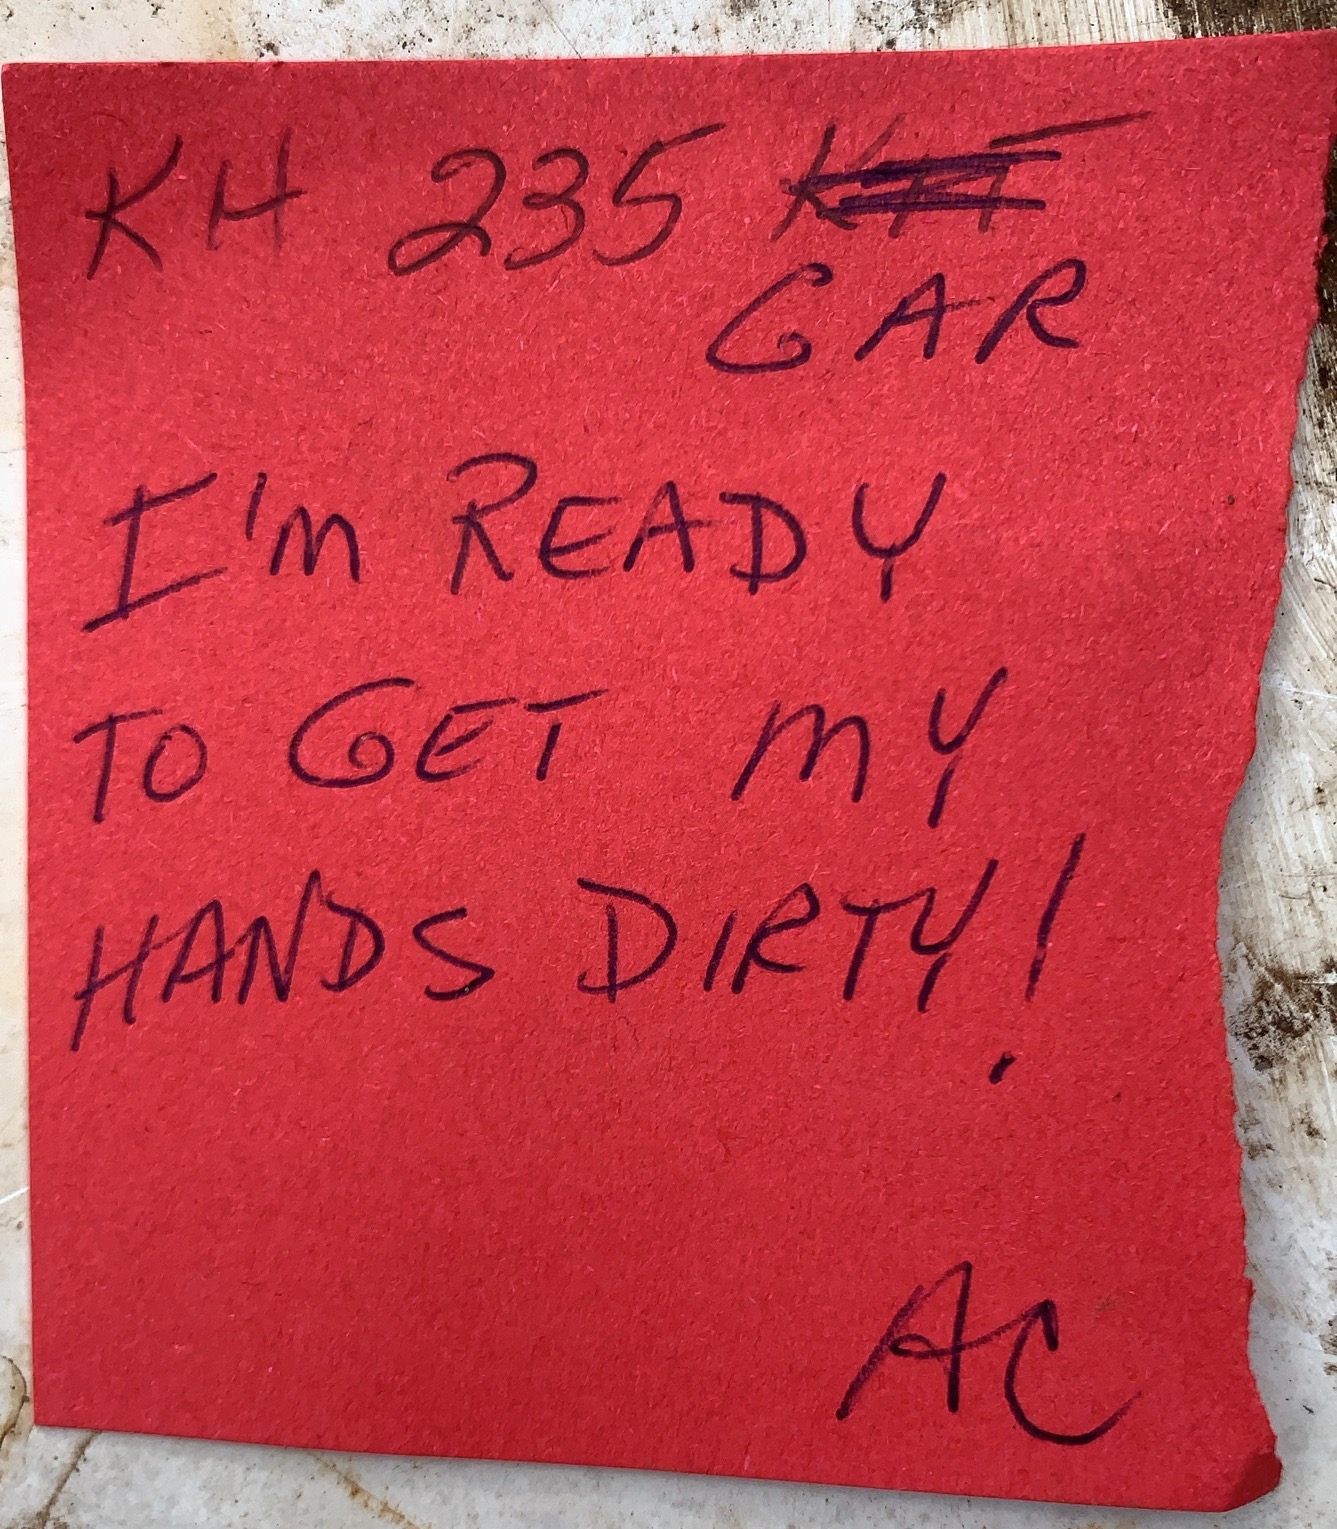 KH 235
GAR
I'm READY
TO GET MY
HANDS DIRTY!
AC